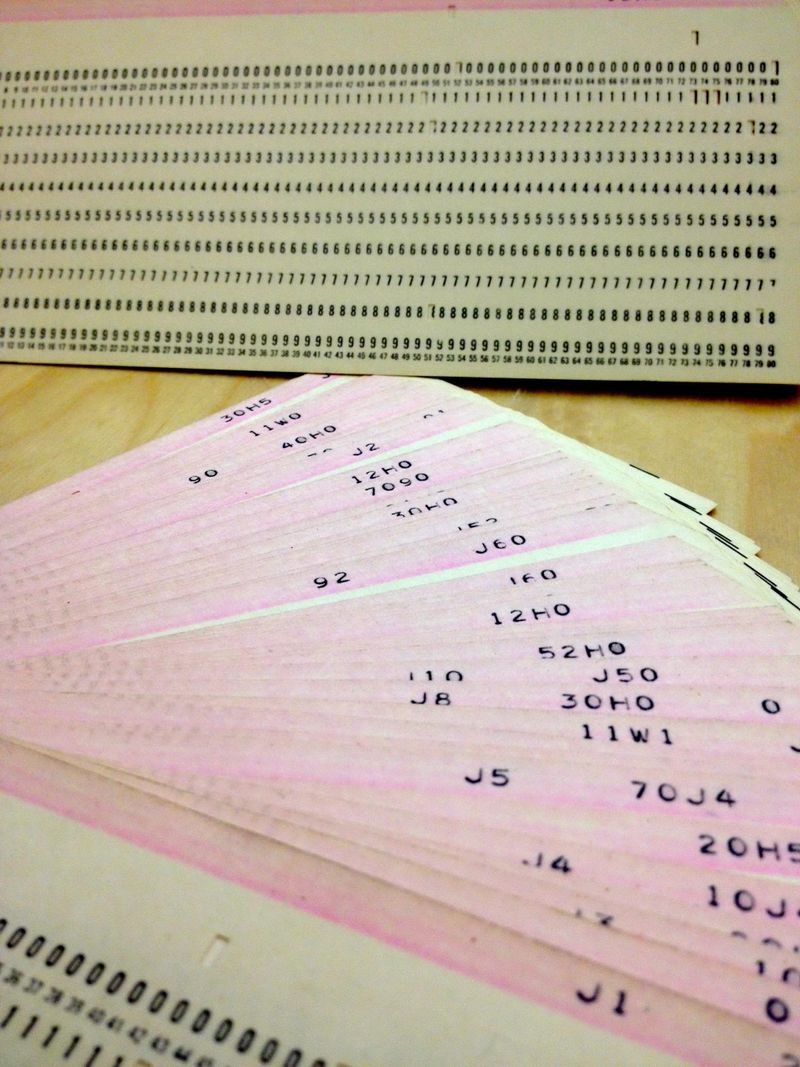 00000000000000000000000000000000000000000000 0000000000000000000000000000
9 10 11 12 13 14 15 16 17 18 19 20 21 22 23 24 25 26 27 28 29 30 31 32 33 34 35 36 37 38 39 40 41 42 43 44 45 46 47 48 49 50 51 52 53 54 55 56 57 58 59 60 61 62 63 64 65 66 67 68 69 70 71 72 73 74 75 76 77 78 79 80
1111111111111111111111111111111111111111 111111111111111111111111 11111
222222222222222222222222222222222222222 22222222222222222222222222222 22
3333333333333333333333333333333333333333333333333333333333333333333333333
4444444444444444444444444444444444444444444444444444444444444444444444444
5555555555555555555555555555555555555555555555555555555555555555555555555
666666666666666666666666666666666666666666666666666666666666666666666666
777777777777777777777777777777777777777777777777777777777777777777777777
8888888888888888888888888888888888888888 888888888888888888888888888888 8
999999999999999999999999999999999999999999999999999999999999999999999999
11 12 13 14 15 16 17 18 19 20 21 22 23 24 25 26 27 28 29 30 31 32 33 34 35 36 37 38 39 40 41 42 43 44 45 46 47 48 49 50 51 52 53 54 55 56 57 58 59 60 61 62 63 64 65 66 67 68 69 70 71 72 73 74 75 76 77 78 79 80
30H5
11W0
40H0
J2
12H0
90
7090
30H0
J60
92
160
12H0
52H0
J50
J8 30H0 0
11W1
J5 70J4
20H5
J4
10J
J1 0
00000000000000000
36 37 38 39 40 41 42 43 44
111111